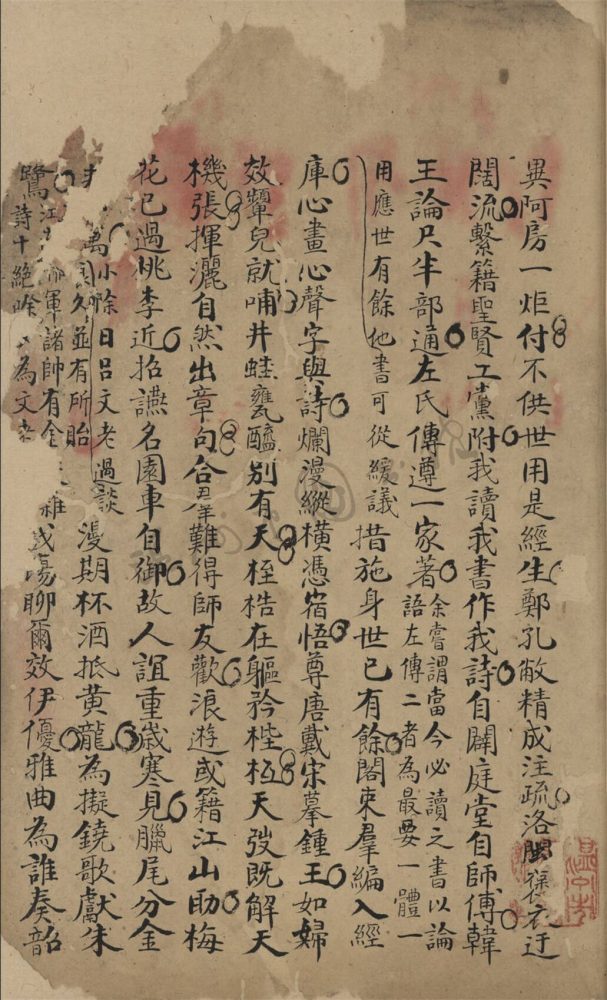 異阿房一炬付不供世用是經生鄭孔敝精成注疏洛閩褒衣迂
闊流繫籍聖賢工黨附我讀我書作我詩自闢庭堂自師傅韓
王論只半部通左氏傳遵一家著余嘗謂當今必讀之書以論
語左傳二者為最要一體一
用應世有餘他書可從緩議措施身世已有餘閣束羣編入經
庫心畫心聲字與詩爛漫縱橫憑宿悟尊唐戴宋摹鍾王如婦
效顰兒就哺井蛙甕醯別有天桎梏在軀矜梐枑天弢既解天
機張揮灑自然出章句合羣難得師友歡浪遊或籍江山助梅
花已過桃李近招讌名園車自御故人誼重歲寒見臘尾分金
小除日呂文老過談
久並有所貽
漫期杯酒抵黃龍為擬鐃歌獻朱
鷺江軍諸帥有
詩十絕
為文老
聊爾效伊優雅曲為誰奏韶